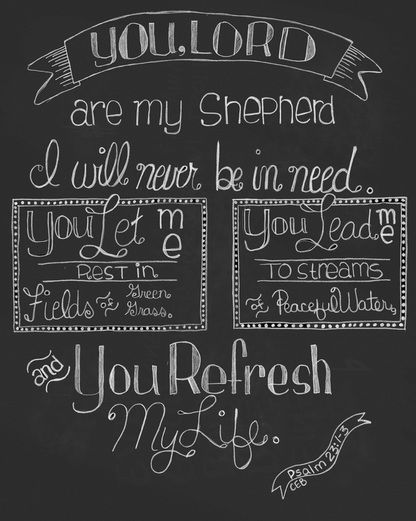 YOU, LORD
are my Shepherd
I will never be in need.
You Let me
REST in
Fields of Green Grass.
You Lead me
TO STREAMS
of Peaceful Water,
and You Refresh
My Life.
Psalm 23:1-3
CEB